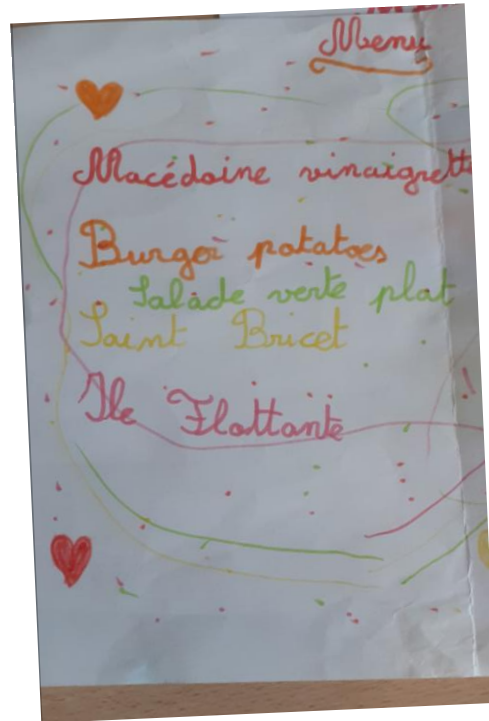 Menu
Macédoine vinaigrette
Burger potatoes
Salade verte plat
Saint Bricet
Ile Flottante